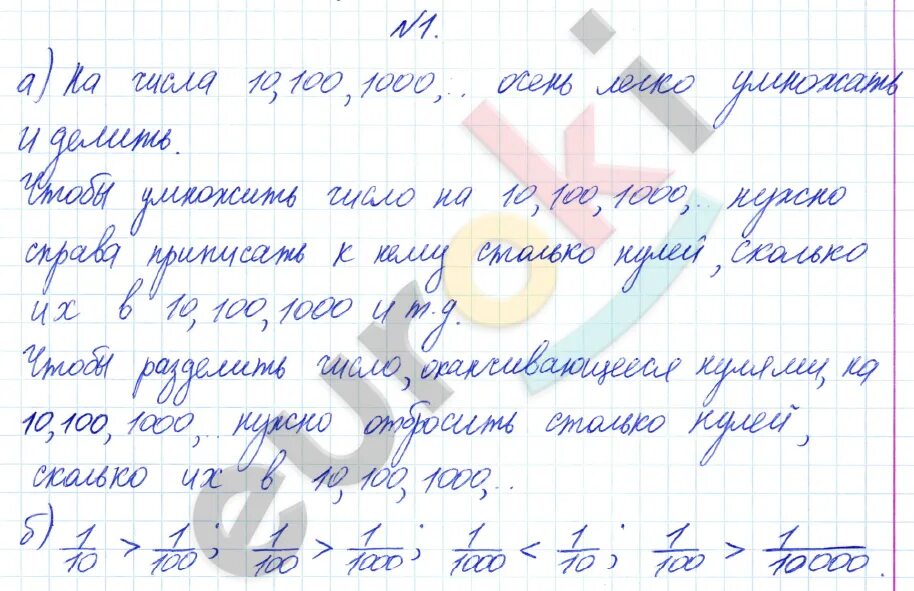 №1.
а) На числа 10, 100, 1000, .. очень легко умножать
и делить.
Чтобы умножить число на 10, 100, 1000, .. нужно
справа приписать к нему столько нулей, сколько
их в 10, 100, 1000 и т.д.
Чтобы разделить число, оканчивающееся нулями, на
10, 100, 1000, .. нужно отбросить столько нулей,
сколько их в 10, 100, 1000, ..
б) 1/10 > 1/100; 1/100 > 1/1000; 1/1000 < 1/10; 1/100 > 1/10000.
euroki